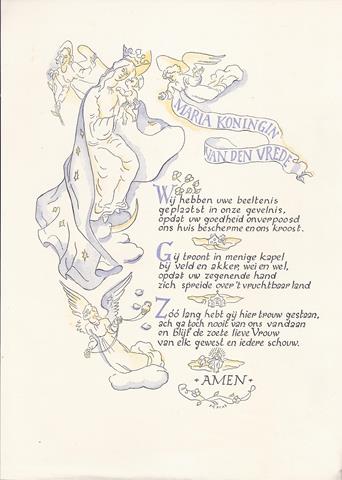 MARIA KONINGIN
VAN DEN VREDE
Wij hebben uwe beeltenis
geplaatst in onze gevelnis,
opdat uw goedheid onverpoosd
ons huis bescherme en ons kroost.
Gij troont in menige kapel
bij veld en akker, wei en wel,
opdat uw zegenende hand
zich spreide over 't vruchtbaar land
Zóó lang hebt gij hier trouw gestaan,
ach ga toch nooit van ons vandaan
en blijf de zoete lieve Vrouw
van elk gewest en iedere schouw.
AMEN